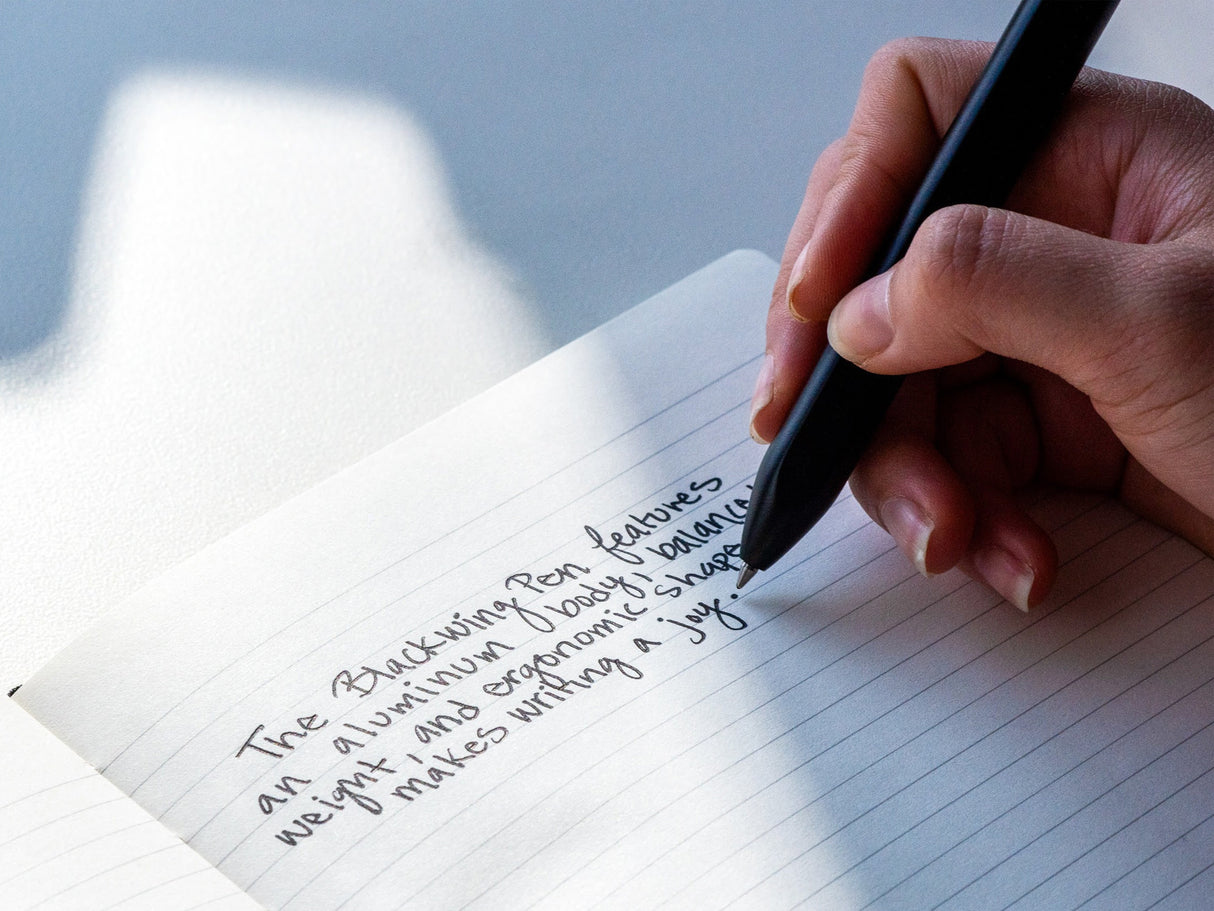 The Blackwing Pen features
an aluminum body,
weight, and ergonomic shape
makes writing a joy.